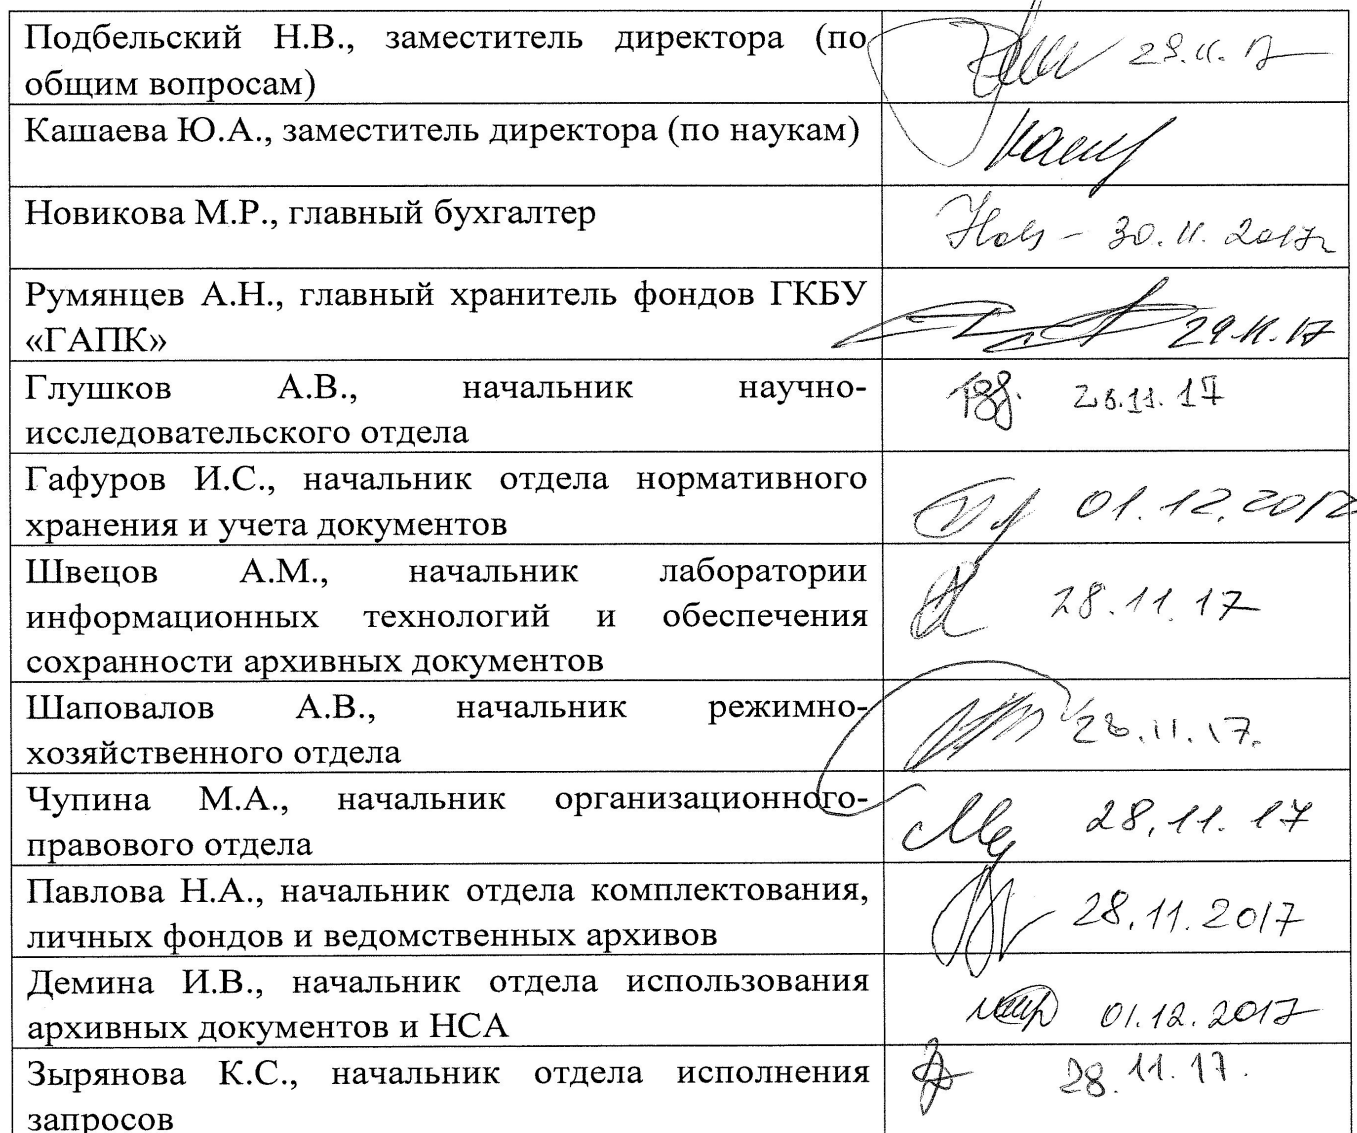 Подбельский Н.В., заместитель директора (по
общим вопросам)
28.11.17
Кашаева Ю.А., заместитель директора (по наукам)
Новикова М.Р., главный бухгалтер
30.11.2017г
Румянцев А.Н., главный хранитель фондов ГКБУ
«ГАПК»
29.11.17
Глушков А.В., начальник научно-
исследовательского отдела
28.11.17
Гафуров И.С., начальник отдела нормативного
хранения и учета документов
01.12.2017
Швецов А.М., начальник лаборатории
информационных технологий и обеспечения
сохранности архивных документов
28.11.17
Шаповалов А.В., начальник режимно-
хозяйственного отдела
28.11.17.
Чупина М.А., начальник организационного-
правового отдела
28.11.17
Павлова Н.А., начальник отдела комплектования,
личных фондов и ведомственных архивов
28.11.2017
Демина И.В., начальник отдела использования
архивных документов и НСА
01.12.2017
Зырянова К.С., начальник отдела исполнения
запросов
28.11.17.